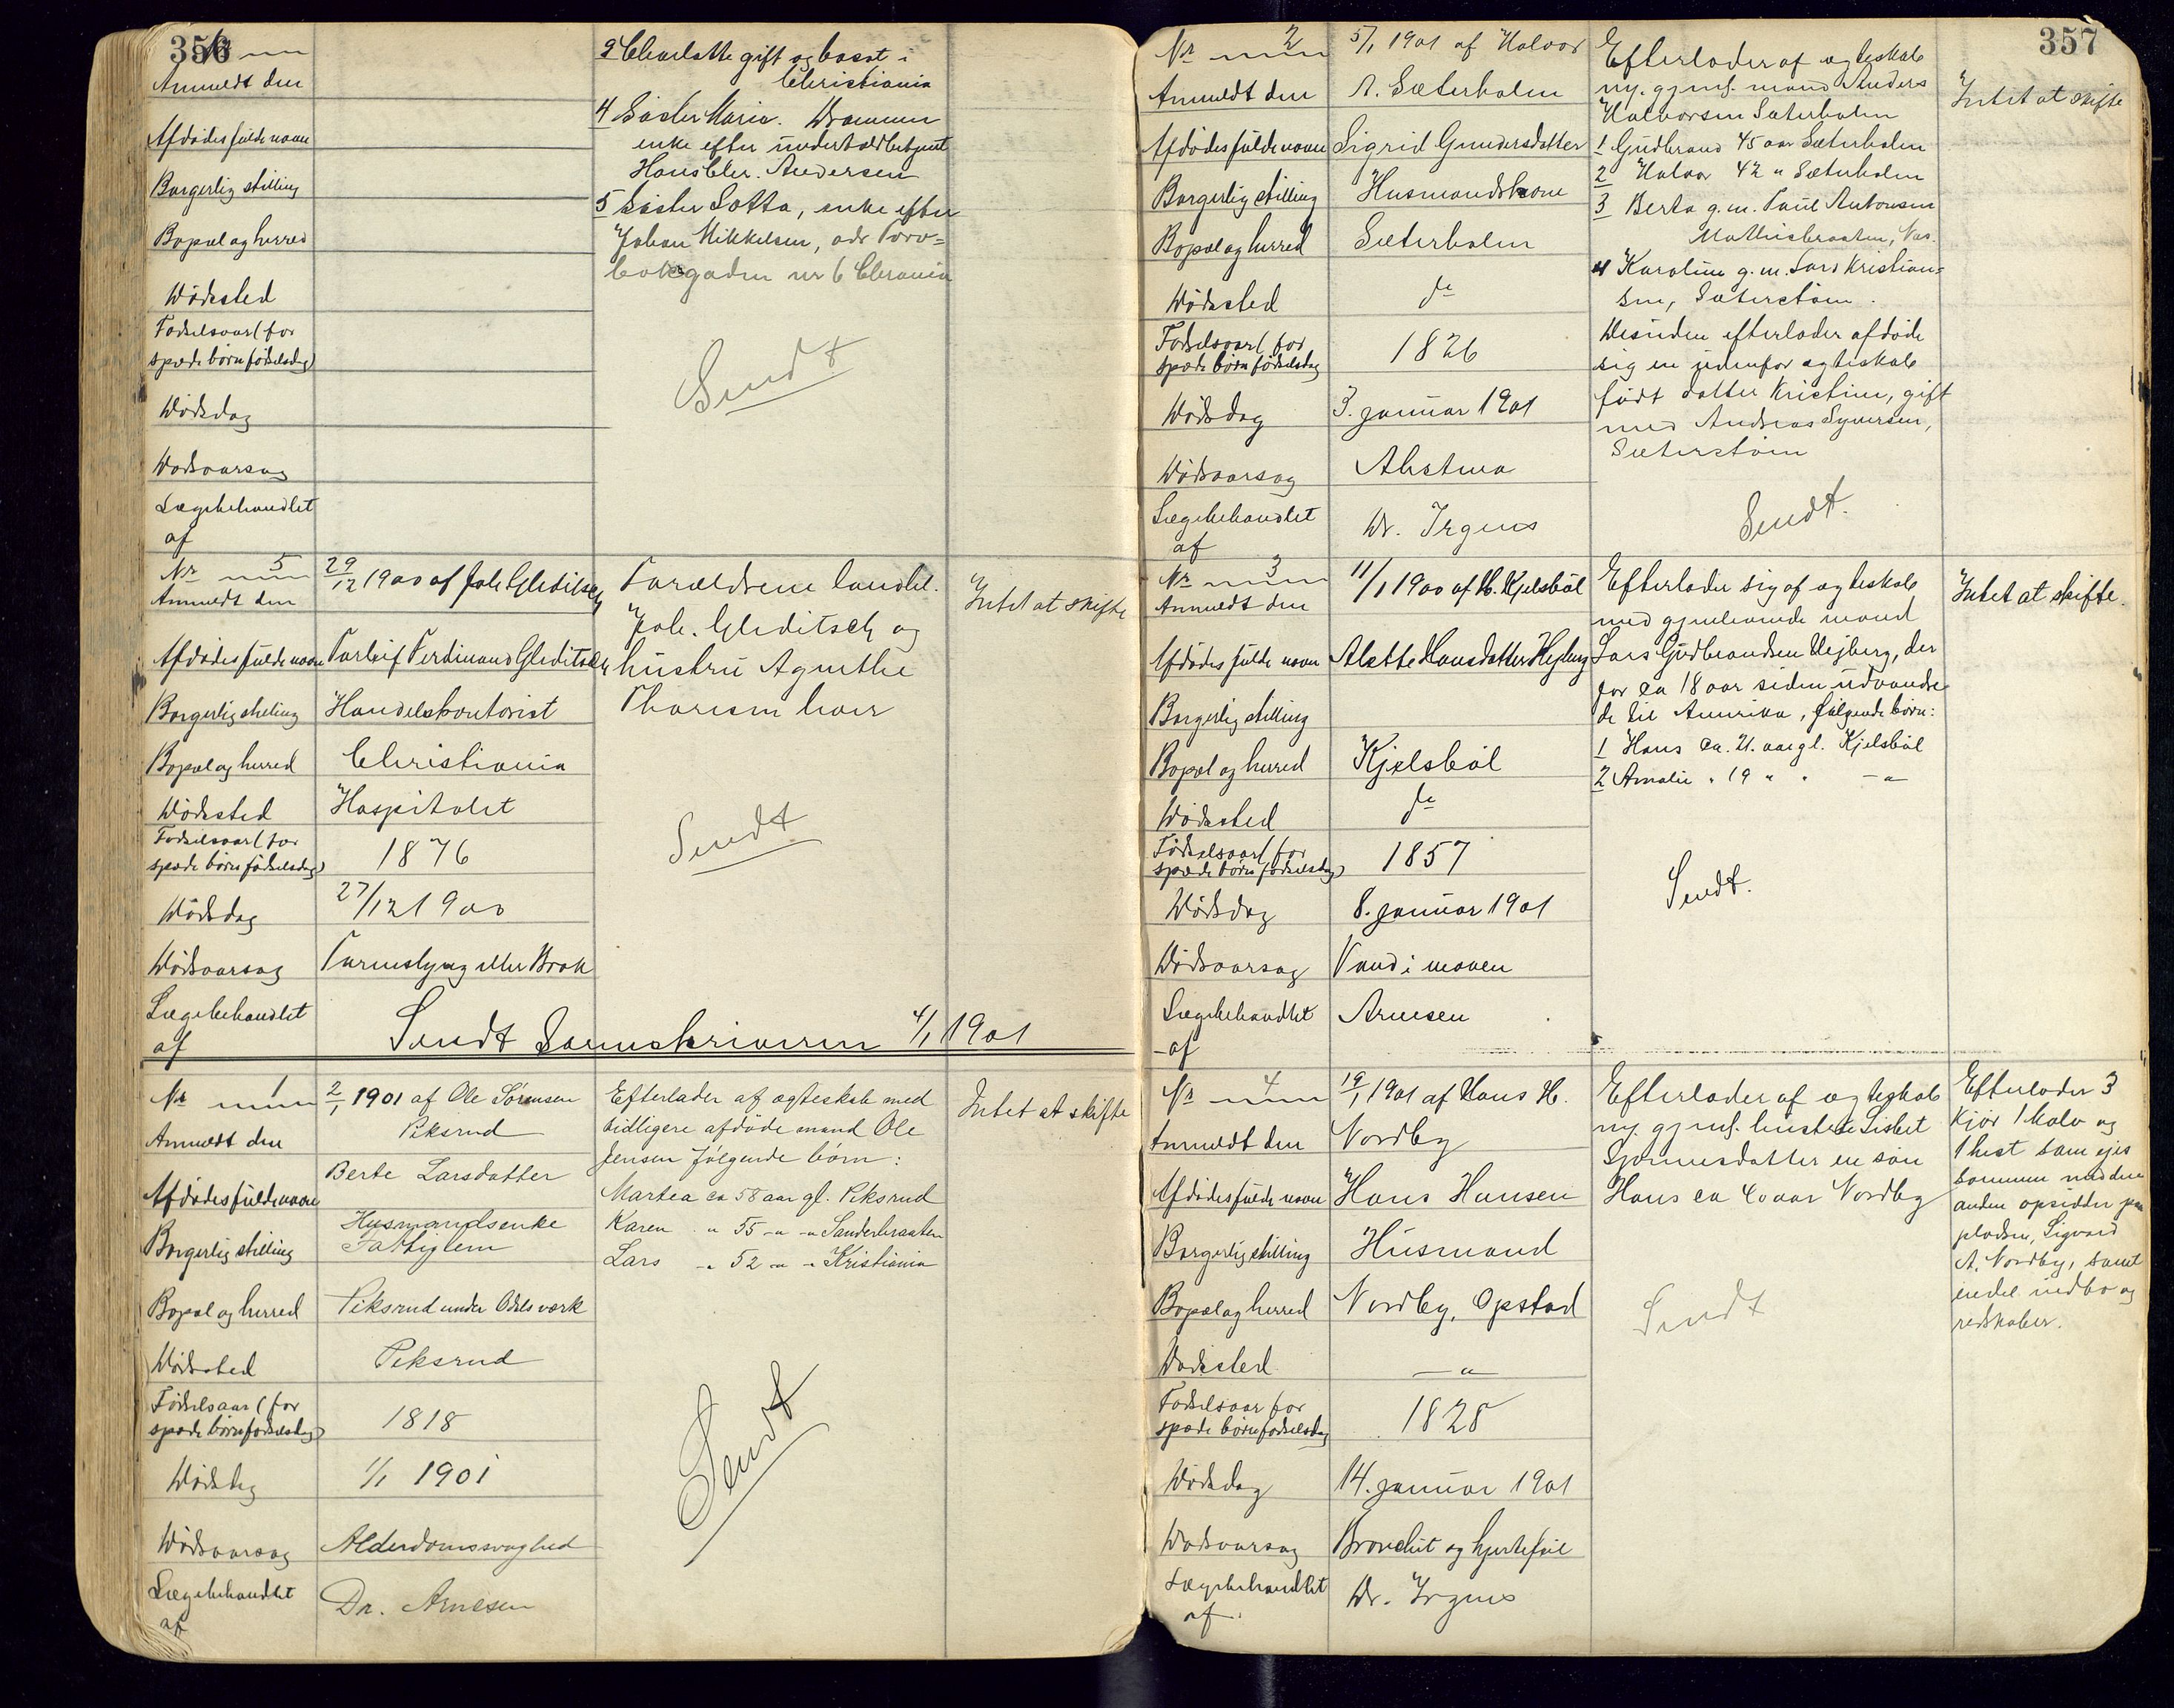 356
Nr
Anmeldt den
Afdødes fulde navn
Borgerlig stilling
Bopæl og herred
Dødssted
Fødselsaar (for
spæde børn fødselsdag)
Dødsdag
Dødsaarsag
Lægebehandlet
af
Charlotte gift og bosat i
Christiania
4 Søster Maria. Drammen
enke efter underfoldbetjent
Hans Chr. Andersen
5 Søster Lotta, enke efter
Johan Mikkelsen, adr
gaden nr 6 Chrania
Sendt
Nr 5
Anmeldt den
29/12 1900 af Joh Gleditsch
Afdødes fulde navn
Torleif Ferdinand Gleditsch
Borgerlig stilling
Handelskontorist
Bopæl og herred
Christiania
Dødssted
Hospitalet
Fødselsaar (for
spæde børn fødselsdag)
1876
Dødsdag
27/12 1900
Dødsaarsag
Tarmslyng eller Brok
Lægebehandlet
af
Forældrene landh.
Joh. Gleditsch og
hustru Agnethe
Thoresen
Sendt
Intet at skifte
Sendt Sorenskriveren 4/1 1901
Nr 1
Anmeldt den
2/1 1901 af Ole Sørensen
Piksrud
Afdødes fulde navn
Berte Larsdatter
Borgerlig stilling
Husmandsenke
Fattiglem
Bopæl og herred
Piksrud under Odals værk
Dødssted
Piksrud
Fødselsaar (for
spæde børn fødselsdag)
1818
Dødsdag
1/1 1901
Dødsaarsag
Alderdomssvaghed
Lægebehandlet
af
Dr. Arnesen
Efterlader af ægteskab med
tidligere afdøde mand Ole
Jensen følgende børn:
Martea ca 58 aar gl. Piksrud
Karen " 55 " " Sanderbraaten
Lars " 52 " " Kristiania
Sendt
Intet at skifte
357
Nr 2
Anmeldt den
5/1 1901 af Halvor
A. Sæterholm
Afdødes fulde navn
Sigrid Gundersdatter
Borgerlig stilling
Husmandskone
Bopæl og herred
Sæterholm
Dødssted
do
Fødselsaar (for
spæde børn fødselsdag
1826
Dødsdag
3. januar 1901
Dødsaarsag
Ahstma
Lægebehandlet
af
Dr. Irgens
Efterlader af ægteskab
m. gjenl. mand Anders
Halvorsen Sæterholm
1 Gudbrand 45 aar Sæterholm
2 Halvor 42 " Sæterholm
3 Berta g.m. Paul Antonsen
Mathisbraaten, Næs.
4 Karoline g.m. Lars Kristian=
sen, Sæterstøen.
Desuden efterlader afdøde
sig en udenfor ægteskab
født datter Kristine, gift
med Andreas Syversen,
Sæterstøen
Sendt.
Intet at skifte
Nr 3
Anmeldt den
11/1 1900 af H. Kjelsbøl
Afdødes fulde navn
Alette Hansdatter Hejberg
Borgerlig stilling
Bopæl og herred
Kjelsbøl
Dødssted
do
Fødselsaar (for
spæde børn fødselsdag)
1857
Dødsdag
8. januar 1901
Dødsaarsag
Vand i maven
Lægebehandlet
af
Arnesen
Efterlader sig af ægteskab
med gjenlevende mand
Lars Gudbrandsen Hejberg, der
for ca 18 aar siden udvandre
de til Amerika, følgende børn:
1 Hans ca. 21. aar gl. Kjelsbøl
2 Amalie " 19 " " — " —
Sendt.
Intet at skifte.
Nr 4
Anmeldt den
19/1 1901 af Hans H.
Nordby
Afdødes fulde navn
Hans Hansen
Borgerlig stilling
Husmand
Bopæl og herred
Nordby, Opstad
Dødssted
— " —
Fødselsaar for
spæde børn fødselsdag
1828
Dødsdag
14. januar 1901
Dødsaarsag
Bronchit og hjertefeil
Lægebehandlet
af
Dr. Irgens
Efterlader af ægteskab
m. gjenl. hustru Lisbet
en søn
Hans ca 40 aar Nordby
Sendt
Efterlader 3
kjør 1 kalv og
1 hest som ejes
sammen med den
anden opsidder paa
pladsen, Sigvard
A. Nordby, samt
endel indbo og
redskaber.